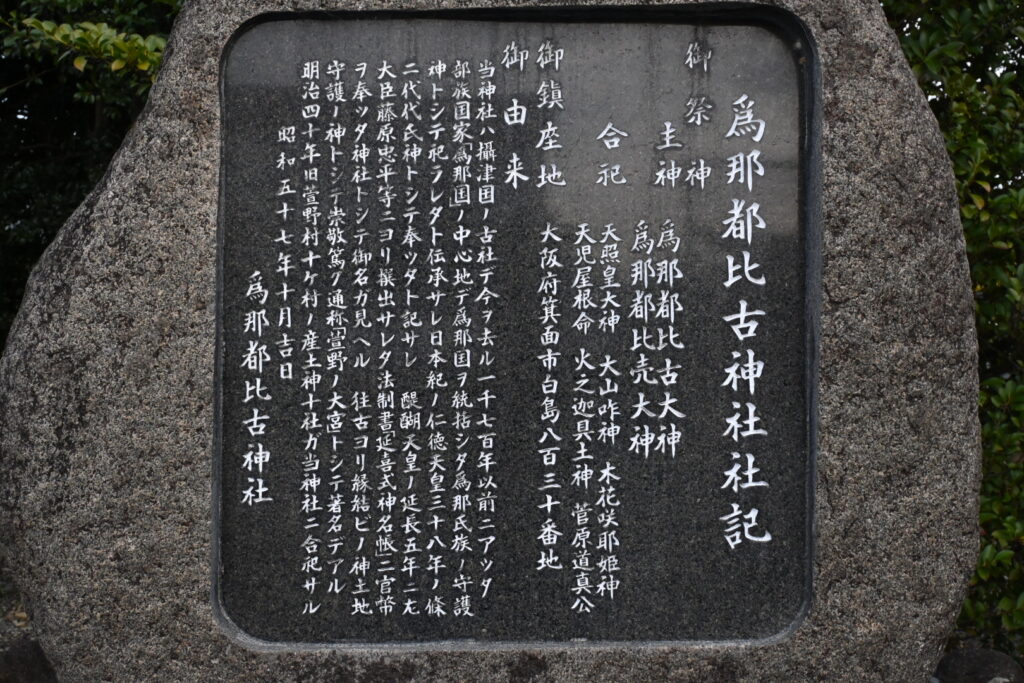 爲那都比古神社社記
御祭神
主神 爲那都比古大神
爲那都比売大神
合祀 天照皇大神 大山咋神 木花咲耶姫神
天児屋根命 火之迦具土神 菅原道真公
御鎮座地 大阪府箕面市白島八百三十番地
御由来
当神社ハ攝津国ノ古社デ今ヲ去ル一千七百年以前ニアツタ
部族国家「爲那国」ノ中心地デ爲那国ヲ統括シタ爲那氏族ノ守護
神トシテ祀ラレタト伝承サレ日本紀ノ仁徳天皇三十八年ノ條
二代代氏神トシテ奉ッタト記サレ 醍醐天皇ノ延長五年ニ左
大臣藤原忠平等ニヨリ撰出サレタ法制書「延喜式神名帳」ニ官幣
ヲ奉ッタ神社トシテ御名ガ見ヘル 往古ヨリ縁結ビノ神土地
守護ノ神トシテ崇敬篤ク通称「萱野ノ大宮」トシテ著名デアル
明治四十年旧萱野村十ケ村ノ産土神十社ガ当神社ニ合祀サル
昭和五十七年十月吉日
爲那都比古神社